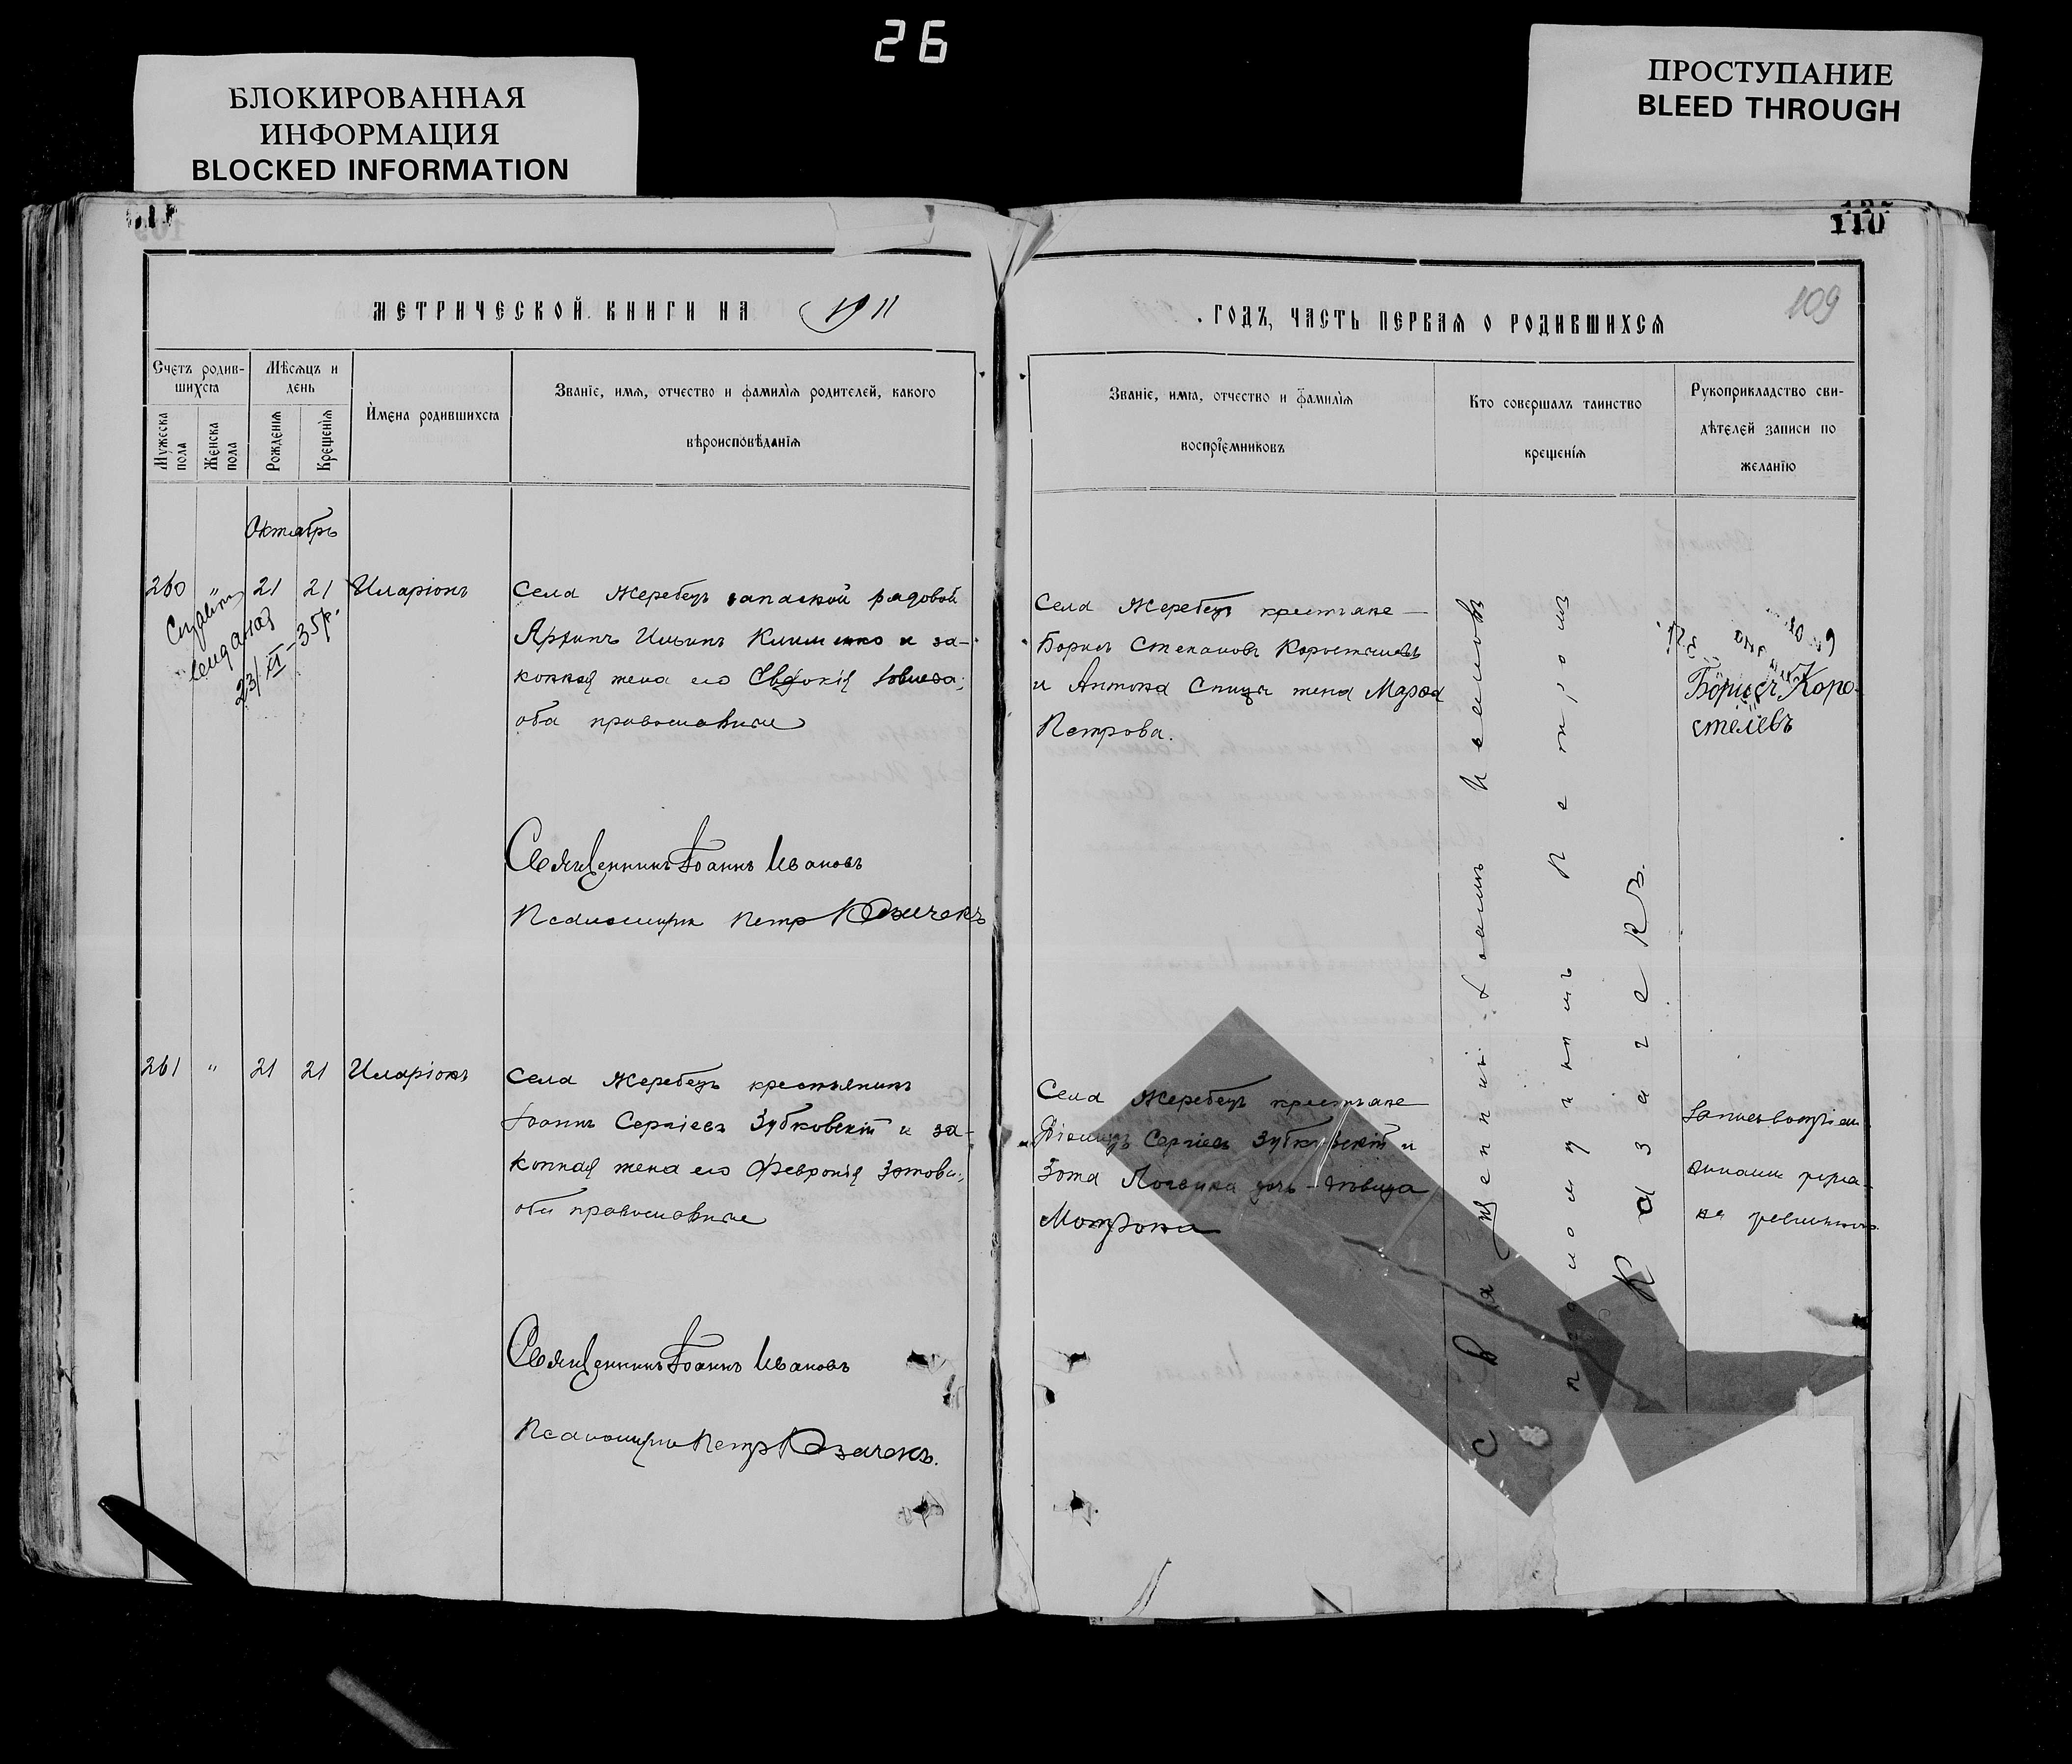 26
БЛОКИРОВАННАЯ
ИНФОРМАЦИЯ
BLOCKED INFORMATION
ПРОСТУПАНИЕ
BLEED THROUGH
110
109
МЕТРИЧЕСКОЙ КНИГИ НА 1911
ГОДЪ, ЧАСТЬ ПЕРВАЯ О РОДИВШИХСЯ
Счетъ родив-
шихся
Мѣсяцъ и
день
Мужеска
пола
Женска
пола
Рожденія
Крещенія
Имена родившихся
Званіе, имя, отчество и фамилія родителей, какого
вѣроисповѣданія
Званіе, имя, отчество и фамилія
воспріемниковъ
Кто совершалъ таинство
крещенія
Рукоприкладство сви-
дѣтелей записи по
желанію
Октябрь
260 " 21 21 Иларіонъ
23/XI-35р.
Села Жеребецъ запасной рядовой
Ильинъ Клименко и за-
конная жена его Евдокія
оба православные
Священникъ Іоаннъ Ивановъ
Псаломщикъ Петръ Козачекъ
Села Жеребецъ крестьяне
Борисъ Степановъ Коростелевъ
и Антона Спицы жена Марѳа
Петрова.
Борисъ Коро-
стелевъ
261 " 21 21 Иларіонъ
Села Жеребецъ крестьянинъ
Іоаннъ Сергіевъ Зубковскій и за-
конная жена его Февронія Зотова;
оба православные
Священникъ Іоаннъ Ивановъ
Псаломщикъ Петръ Козачекъ.
Села Жеребецъ крестьяне
Сергіевъ Зубковскій и
Зота дочь дѣвица
Матрона
Священникъ Іоаннъ Ивановъ
псаломщикъ Петръ
Казачекъ.